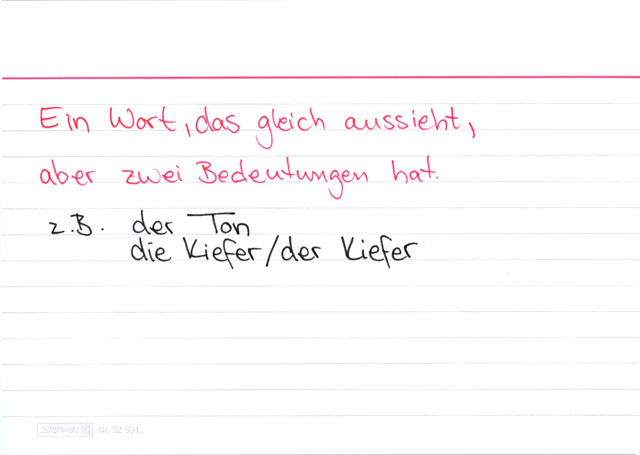 Ein Wort, das gleich aussieht,
aber zwei Bedeutungen hat.
z.B. der Ton
die Kiefer/der Kiefer
BRUNNEN Nr. 22 601..